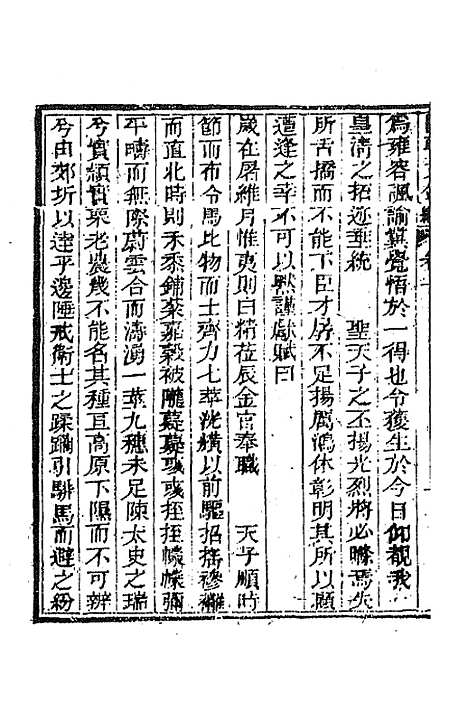 爲雍容諷諭冀覺悟於一得也今獲生於今日仰覩我
皇清之拓迹垂統 聖天子之丕揚光烈將必瞭焉失
所舌撟而不能下臣才孱不足揚厲鴻休彰明其所以願
遭逢之幸不可以默謹獻賦曰
歲在屠維月惟夷則白精莅辰金官奉職 天子順時
節而布令馬比物而士齊力七萃洸橫以前驅招搖襂纚
而直北時則禾黍鋪棻嘉穀被隴薿薿彧彧挃挃幪幪彌
平疇而無際蔚雲合而濤湧一莖九穗未足陳太史之瑞
兮實穎實栗老農幾不能名其種亘高原下隰而不可辨
兮由郊圻以達乎邊陲戒衛士之蹂躪引騈馬而避之紛